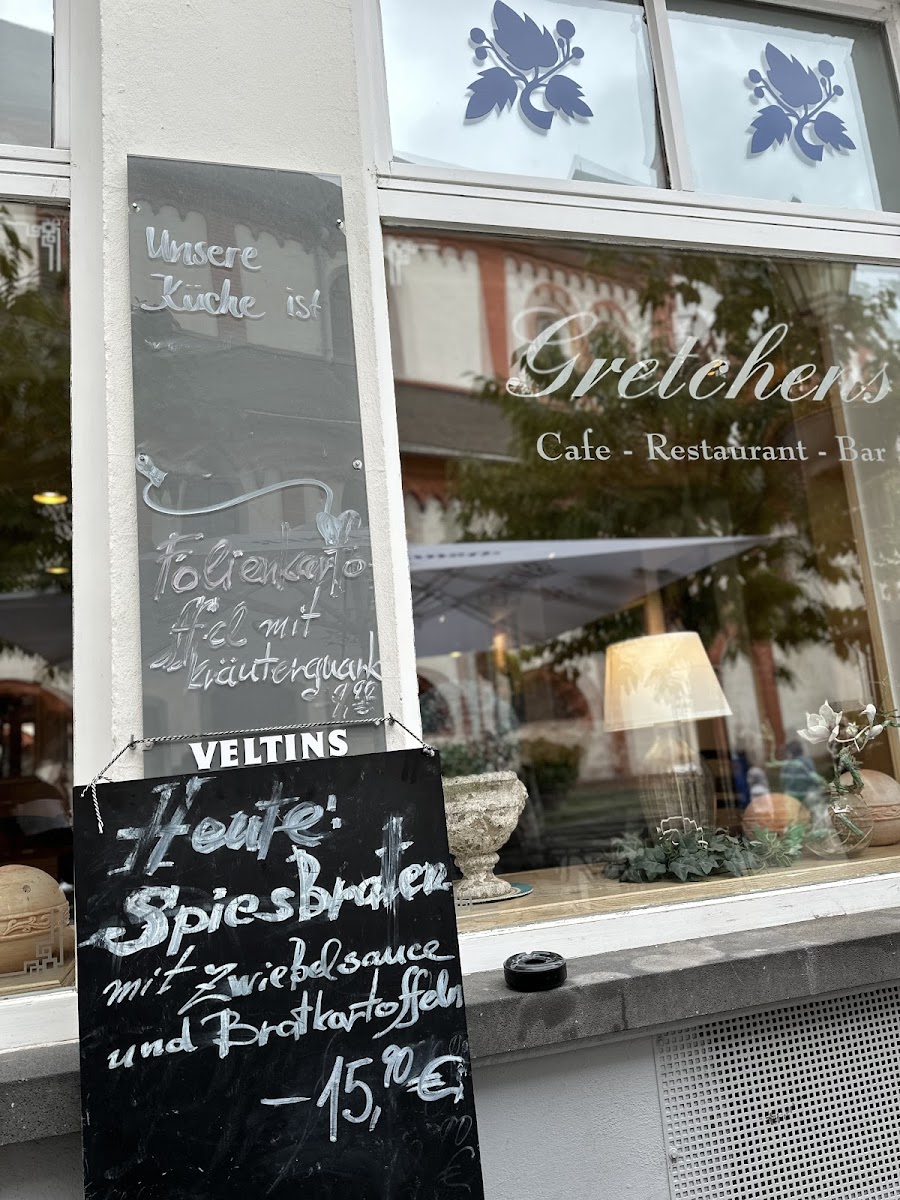 Unsere
Küche ist
Folienkarto-
ffel mit
kräuterquark
VELTINS
Heute:
Spiesbraten
mit Zwiebelsauce
und Bratkartoffeln
-15,90 €
Gretchens
Cafe - Restaurant - Bar